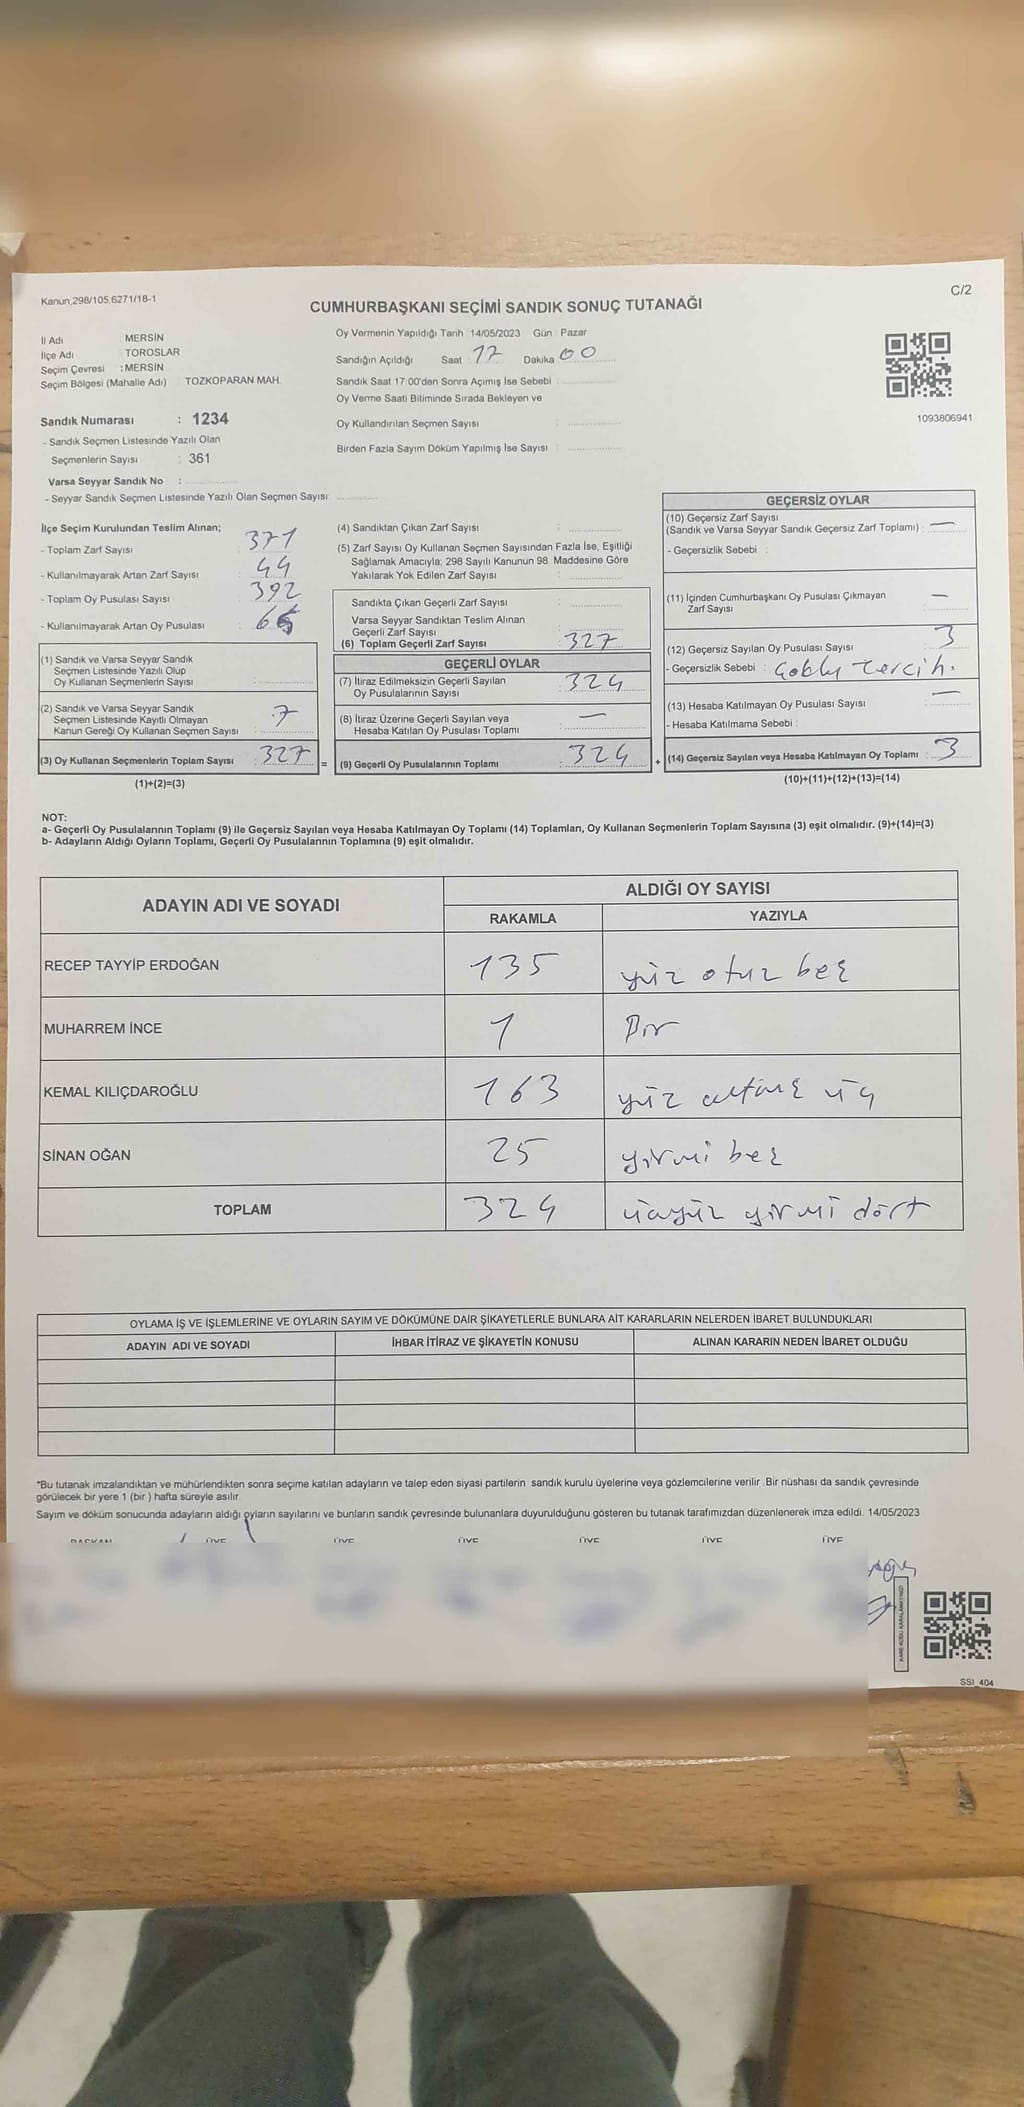 Kanun;298/105,6271/18-1
C/2
CUMHURBAŞKANI SEÇİMİ SANDIK SONUÇ TUTANAĞI
İl Adı : MERSİN
İlçe Adı : TOROSLAR
Seçim Çevresi : MERSİN
Seçim Bölgesi (Mahalle Adı) : TOZKOPARAN MAH.
Sandık Numarası : 1234
- Sandık Seçmen Listesinde Yazılı Olan
Seçmenlerin Sayısı : 361
Varsa Seyyar Sandık No :
- Seyyar Sandık Seçmen Listesinde Yazılı Olan Seçmen Sayısı:
Oy Vermenin Yapıldığı Tarih :14/05/2023 Gün : Pazar
Sandığın Açıldığı Saat : 17 Dakika : 00
Sandık Saat 17:00'den Sonra Açımış İse Sebebi :
Oy Verme Saati Bitiminde Sırada Bekleyen ve
Oy Kullandırılan Seçmen Sayısı :
Birden Fazla Sayım Döküm Yapılmış İse Sayısı :
1093806941
İlçe Seçim Kurulundan Teslim Alınan;
- Toplam Zarf Sayısı : 371
- Kullanılmayarak Artan Zarf Sayısı : 44
- Toplam Oy Pusulası Sayısı : 392
- Kullanılmayarak Artan Oy Pusulası :
(1) Sandık ve Varsa Seyyar Sandık
Seçmen Listesinde Yazılı Olup
Oy Kullanan Seçmenlerin Sayısı :
(2) Sandık ve Varsa Seyyar Sandık
Seçmen Listesinde Kayıtlı Olmayan
Kanun Gereği Oy Kullanan Seçmen Sayısı : 7
(3) Oy Kullanan Seçmenlerin Toplam Sayısı : 327
(1)+(2)=(3)
(4) Sandıktan Çıkan Zarf Sayısı :
(5) Zarf Sayısı Oy Kullanan Seçmen Sayısından Fazla İse, Eşitliği
Sağlamak Amacıyla; 298 Sayılı Kanunun 98. Maddesine Göre
Yakılarak Yok Edilen Zarf Sayısı :
Sandıkta Çıkan Geçerli Zarf Sayısı :
Varsa Seyyar Sandıktan Teslim Alınan
Geçerli Zarf Sayısı :
(6) Toplam Geçerli Zarf Sayısı : 327
=
GEÇERLİ OYLAR
(7) İtiraz Edilmeksizin Geçerli Sayılan
Oy Pusulalarının Sayısı : 324
(8) İtiraz Üzerine Geçerli Sayılan veya
Hesaba Katılan Oy Pusulası Toplamı : —
(9) Geçerli Oy Pusulalarının Toplamı : 324
+
GEÇERSİZ OYLAR
(10) Geçersiz Zarf Sayısı
(Sandık ve Varsa Seyyar Sandık Geçersiz Zarf Toplamı) : —
- Geçersizlik Sebebi :
(11) İçinden Cumhurbaşkanı Oy Pusulası Çıkmayan
Zarf Sayısı : —
(12) Geçersiz Sayılan Oy Pusulası Sayısı : 3
- Geçersizlik Sebebi : Çoklu tercih.
(13) Hesaba Katılmayan Oy Pusulası Sayısı : —
- Hesaba Katılmama Sebebi :
(14) Geçersiz Sayılan veya Hesaba Katılmayan Oy Toplamı : 3
(10)+(11)+(12)+(13)=(14)
NOT:
a- Geçerli Oy Pusulalarının Toplamı (9) ile Geçersiz Sayılan veya Hesaba Katılmayan Oy Toplamı (14) Toplamları, Oy Kullanan Seçmenlerin Toplam Sayısına (3) eşit olmalıdır. (9)+(14)=(3)
b- Adayların Aldığı Oyların Toplamı, Geçerli Oy Pusulalarının Toplamına (9) eşit olmalıdır.
ADAYIN ADI VE SOYADI
ALDIĞI OY SAYISI
RAKAMLA YAZIYLA
RECEP TAYYİP ERDOĞAN 135 yüz otuz beş
MUHARREM İNCE 1 Bir
KEMAL KILIÇDAROĞLU 163 yüz altmış üç
SİNAN OĞAN 25 yirmi beş
TOPLAM 324 üçyüz yirmi dört
OYLAMA İŞ VE İŞLEMLERİNE VE OYLARIN SAYIM VE DÖKÜMÜNE DAİR ŞİKAYETLERLE BUNLARA AİT KARARLARIN NELERDEN İBARET BULUNDUKLARI
ADAYIN ADI VE SOYADI İHBAR İTİRAZ VE ŞİKAYETİN KONUSU ALINAN KARARIN NEDEN İBARET OLDUĞU
*Bu tutanak imzalandıktan ve mühürlendikten sonra seçime katılan adayların ve talep eden siyasi partilerin sandık kurulu üyelerine veya gözlemcilerine verilir .Bir nüshası da sandık çevresinde
görülecek bir yere 1 (bir ) hafta süreyle asılır.
Sayım ve döküm sonucunda adayların aldığı oyların sayılarını ve bunların sandık çevresinde bulunanlara duyurulduğunu gösteren bu tutanak tarafımızdan düzenlenerek imza edildi. 14/05/2023
BAŞKAN ÜYE ÜYE ÜYE ÜYE ÜYE ÜYE
KARE KODU KARALAMAYINIZ!
SSI_404